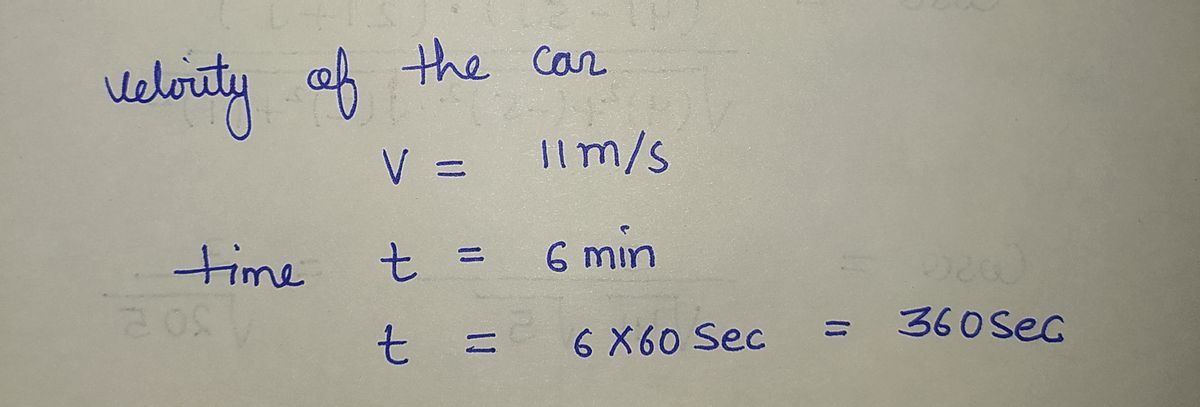 velocity of the car
V = 11 m/s
time t = 6 min
t = 6 X 60 Sec = 360 Sec